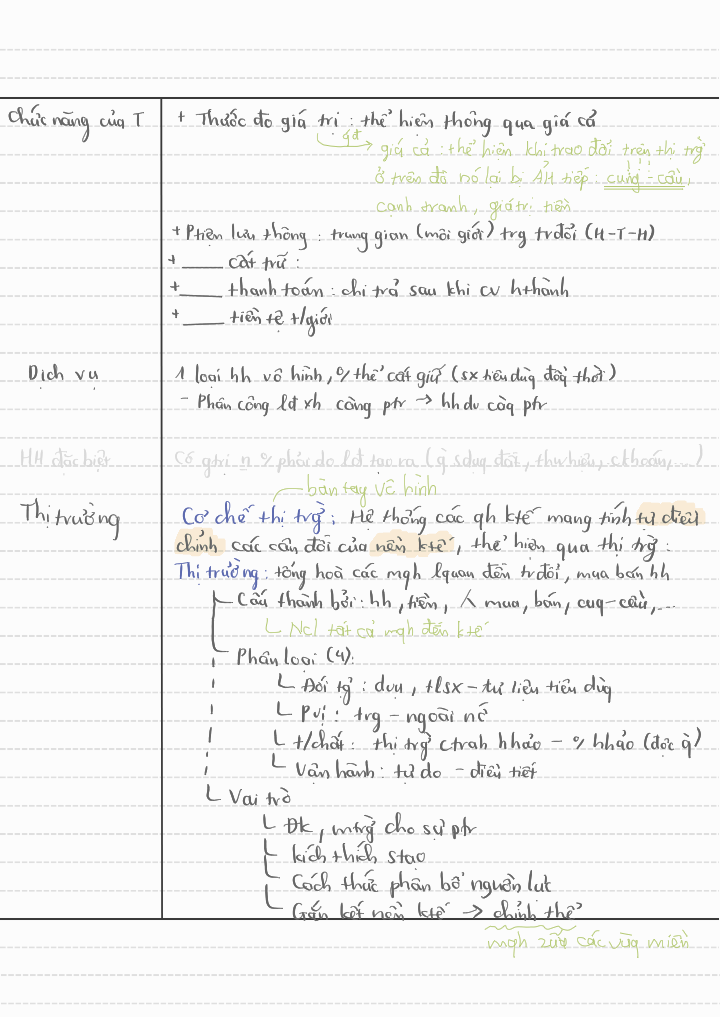 Chức năng của T
+ Thước đo giá trị : thể hiện thông qua giá cả
qđ
giá cả : thể hiện khi trao đổi trên thị trg̀
ở trên đó nó lại bị ẢH tiếp : cung - cầu,
cạnh tranh, giá trị tiền
+ Ptiện lưu thông : trung gian (môi giới) trg trđổi (H-T-H)
+ ____ cất trữ :
+ ____ thanh toán : chi trả sau khi cv hthành
+ ____ tiền tệ t/giới
Dịch vụ
1 loại hh vô hình, % thể cất giữ (sx tiêu dùg đồg thời)
- Phân công lđ xh càng ptr → hh dv càg ptr
HH đặc biệt
Có gtrị n % phải do lđ tạo ra (q̀ sdụg đất, thg hiệu, ckhoán, ...)
bàn tay vô hình
Thị trường
Cơ chế thị trg̀ : Hệ thống các qh ktế mang tính tự điều
chỉnh các cân đối của nền ktế, thể hiện qua thị trg̀ :
Thị trường : tổng hoà các mqh lquan đến trđổi, mua bán hh
Cấu thành bởi : hh, tiền, 人 mua, bán, cug-cầu, ...
Ncl tất cả mqh đến ktế
Phân loại (4) :
Đối tg̣ : dvụ, tlsx - tư liệu tiêu dùg
P.vị : trg - ngoài nc
t/chất : thị trg̀ ctrah hhảo - % hhảo (độc q̀)
Vận hành : tự do - điều tiết
Vai trò
Đk, mtrg̀ cho sự ptr
kích thích stạo
Cách thức phân bổ nguồn lực
Gắn kết nền ktế → chỉnh thể
mqh giữa các vùg miền